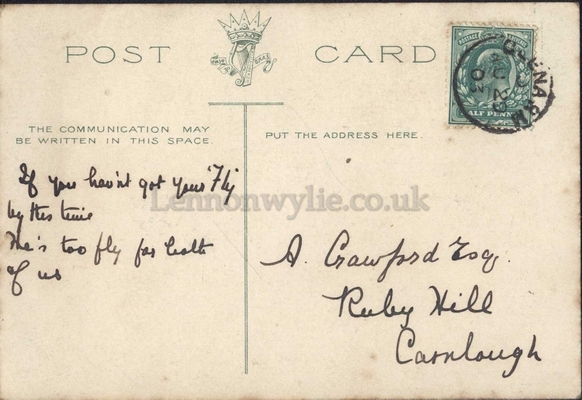 POST CARD
THE COMMUNICATION MAY
BE WRITTEN IN THIS SPACE.
PUT THE ADDRESS HERE.
HALF PENNY
GLENARM
AU 29
03
If you hav'nt got your 'Fly
by this time
He's too fly for both
of us
A. Crawford Esq.
Ruby Hill
Carnlough
Lennonwylie.co.uk